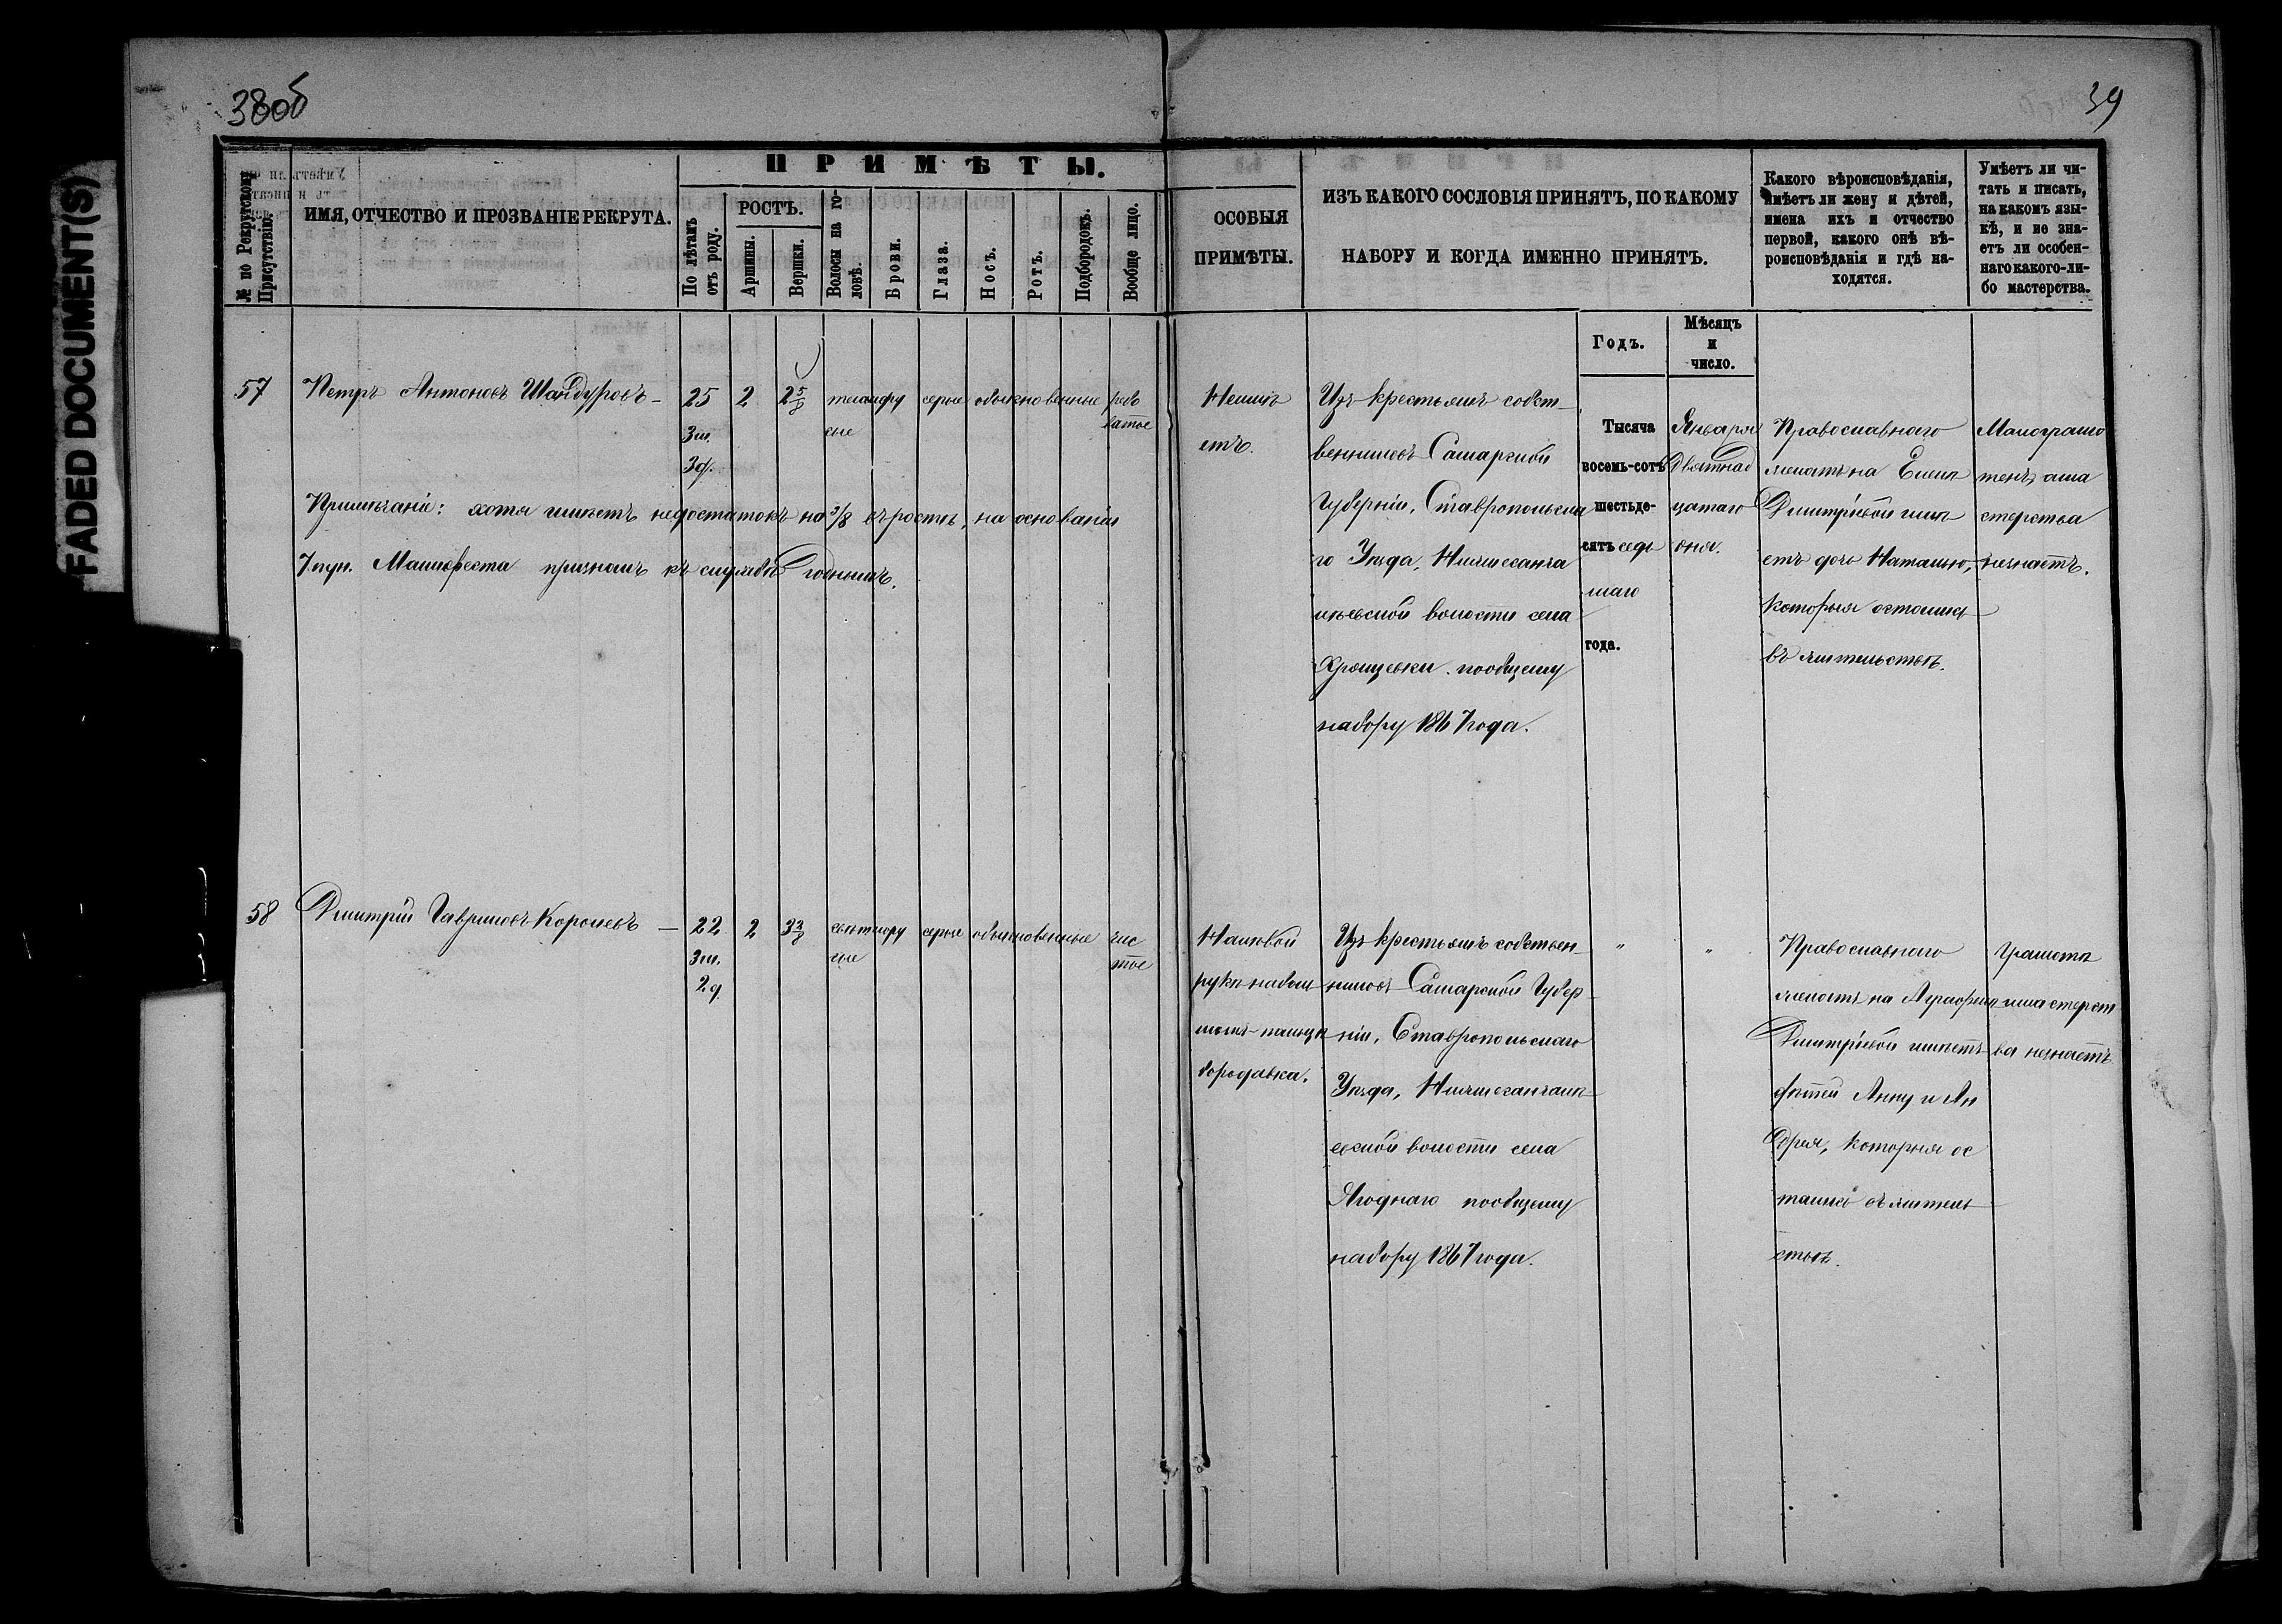 38об
39
FADED DOCUMENT(S)
№ по Рекрутскому Присутствію.
ИМЯ, ОТЧЕСТВО И ПРОЗВАНІЕ РЕКРУТА.
ПРИМѢТЫ.
По лѣтамъ отъ роду.
РОСТЪ.
Аршины.
Вершки.
Волосы на головѣ.
Брови.
Глаза.
Носъ.
Ротъ.
Подбородокъ.
Вообще лицо.
ОСОБЫЯ
ПРИМѢТЫ.
ИЗЪ КАКОГО СОСЛОВІЯ ПРИНЯТЪ, ПО КАКОМУ
НАБОРУ И КОГДА ИМЕННО ПРИНЯТЪ.
Годъ.
Мѣсяцъ
и
число.
Какого вѣроисповѣданія,
имѣетъ ли жену и дѣтей,
имена ихъ и отчество
первой, какого онѣ вѣ-
роисповѣданія и гдѣ на-
ходятся.
Умѣетъ ли чи-
тать и писать,
на какомъ язы-
кѣ, и не зна-
етъ ли особен-
наго какого-ли-
бо мастерства.
57
Петръ Антоновъ Шандуровъ
25
3 м.
3 д.
2
2 5/8
темнору
сые
серые
обыкновенные
рябо
ватое
Примѣчаніе: хотя имѣетъ недостатокъ на 3/8 въ ростѣ, на основаніи
7 пун. Манифеста признанъ къ службѣ годнымъ.
Неимѣ
етъ.
Изъ крестьянъ собст-
венниковъ Самарской
Губерніи, Ставропольска
го Уѣзда, Нижнесанча
лѣевской волости села
Хрящевки пообщему
набору 1867 года.
Тысяча
восемь-сотъ
шестьде-
сятъ седь
маго
года.
Января
Двѣтнад
цатаго
дня.
Православнаго
женатъ на Еленѣ
Дмитріевой имѣ
етъ дочь Наталью,
которыя остались
въ жительствѣ.
Малограмо
тенъ, ма
стерства
незнаетъ.
58
Дмитрій Гавриловъ Королевъ
22
3 м.
2 д
2
3 3/8
свѣтлору
сые
серые
обыкновенные
чис
тое
На лѣвой
рукѣ на боль
шомъ пальцѣ
бородавка.
Изъ крестьянъ собствен-
никовъ Самарской Губер-
ніи, Ставропольскаго
Уѣзда, Нижнесанчалѣ-
евской волости села
Ягоднаго пообщему
набору 1867 года.
"
"
Православнаго
женатъ на Аграфенѣ
Дмитріевой имѣетъ
дѣтей Анну и Ан
дрея, которыя ос
тались въ житель
ствѣ.
Грамотѣ
и мастерст
ва незнаетъ